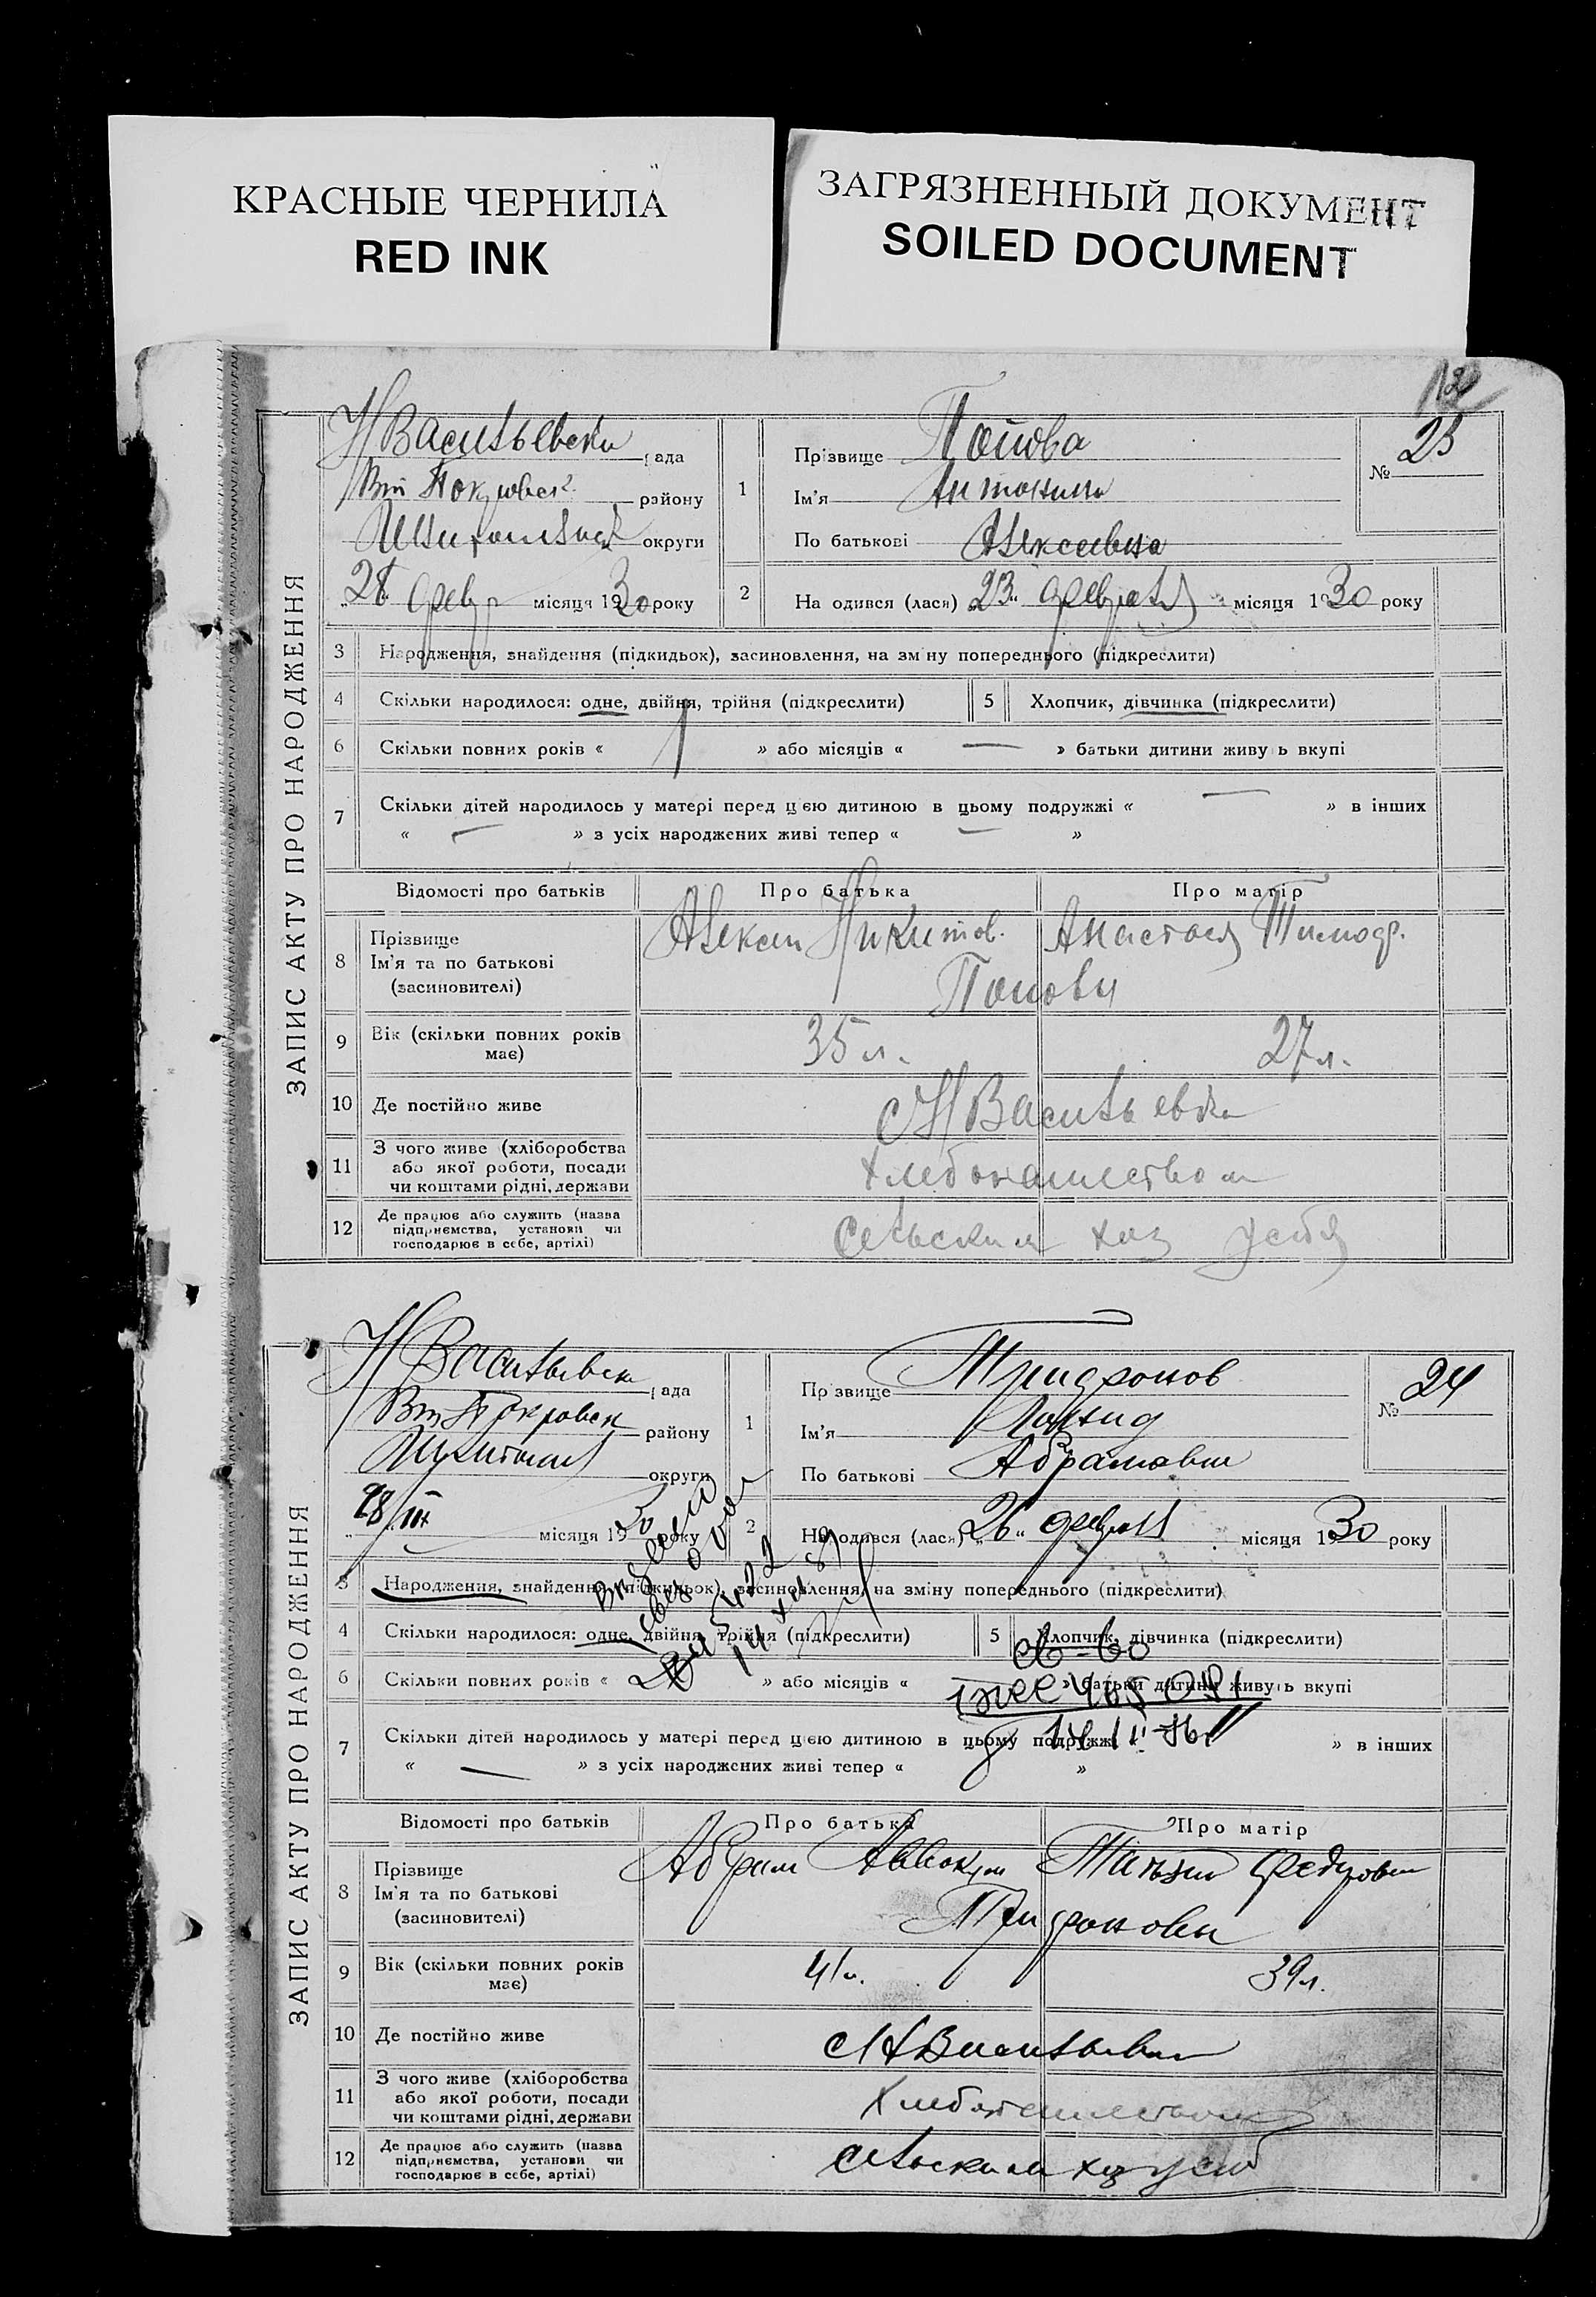 КРАСНЫЕ ЧЕРНИЛА
RED INK
ЗАГРЯЗНЕННЫЙ ДОКУМЕНТ
SOILED DOCUMENT
ЗАПИС АКТУ ПРО НАРОДЖЕННЯ
Н Васильевськ рада
Вт Покровск района району
округи
28 февр місяця 1930 року
1 Прізвище Попова
Ім'я Антонина
По батькові Алексеевна
№ 23
2 На одився (лася) „23“ февраля місяця 1930 року
3 Народження, знайдення (підкидьок), засиновлення, на зміну попереднього (підкреслити)
4 Скільки народилося: одне, двійня, трійня (підкреслити)
5 Хлопчик, дівчинка (підкреслити)
6 Скільки повних років « 1 » або місяців « — » батьки дитини живуть вкупі
7 Скільки дітей народилось у матері перед цією дитиною в цьому подружжі « — » в інших
« — » з усіх народжених живі тепер « — »
Відомості про батьків Про батька Про матір
8 Прізвище
Ім'я та по батькові
(засиновителі)
Алексей Никитов. Анастасия Тимоф.
Поповы
9 Вік (скільки повних років має) 35 л. 27 л.
10 Де постійно живе С Н Васильевка
11 З чого живе (хліборобства
або якої роботи, посади
чи коштами рідні, держави
Хлебопашеством
12 Де працює або служить (назва
підприємства, установи чи
господарює в себе, артілі)
Сельским хоз у себя
ЗАПИС АКТУ ПРО НАРОДЖЕННЯ
Н Васильевск рада
Вт Покровск району
округи
28/III місяця 1930 року
1 Прізвище Трифонов
Ім'я Леонид
По батькові Абрамович
№ 24
2 Народився (лася) „26“ февраля місяця 1930 року
3 Народження, знайдення (підкидьок), засиновлення, на зміну попереднього (підкреслити)
4 Скільки народилося: одне, двійня, трійня (підкреслити)
5 Хлопчик, дівчинка (підкреслити)
6 Скільки повних років « » або місяців « — » батьки дитини живуть вкупі
7 Скільки дітей народилось у матері перед цією дитиною в цьому подружжі » в інших
« — » з усіх народжених живі тепер « »
Відомості про батьків Про батька Про матір
8 Прізвище
Ім'я та по батькові
(засиновителі)
Абрам Аввакум Федоровн
Трифоновы
9 Вік (скільки повних років має) 41 л. 39 л.
10 Де постійно живе С Н Васильевка
11 З чого живе (хліборобства
або якої роботи, посади
чи коштами рідні, держави
Хлебопашеством
12 Де працює або служить (назва
підприємства, установи чи
господарює в себе, артілі)
Сельским хоз у себ